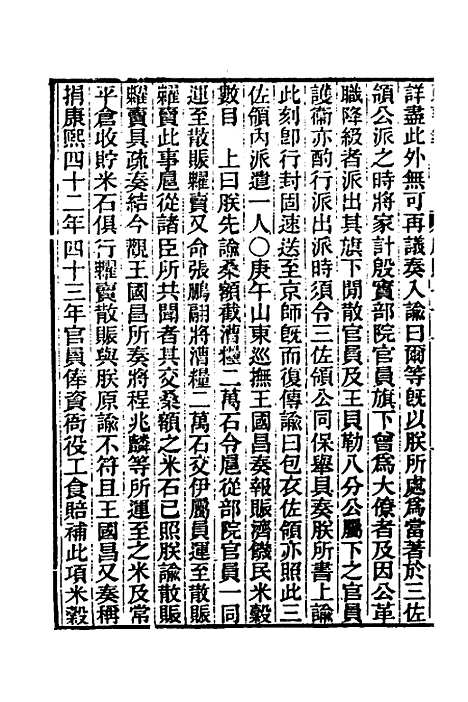 詳盡此外無可再議奏入諭曰爾等既以朕所處爲當著於三佐
領公派之時將家計殷實部院官員旗下曾爲大僚者及因公革
職降級者派出其旗下閒散官員及王貝勒八分公屬下之官員
護衛亦酌行派出派時須令三佐領公同保舉具奏朕所書上諭
此刻卽行封固速送至京師旣而復傳諭曰包衣佐領亦照此三
佐領內派遣一人〇庚午山東巡撫王國昌奏報賑濟饑民米穀
數目　上曰朕先諭桑額截漕糧二萬石令扈從部院官員一同
運至散賑糶賣又命張鵬翮將漕糧二萬石交伊屬員運至散賑
糶賣此事扈從諸臣所共聞者其交桑額之米石已照朕諭散賑
糶賣具疏奏結今觀王國昌所奏將程兆麟等所運至之米及常
平倉收貯米石俱行糶賣散賑與朕原諭不符且王國昌又奏稱
捐康熙四十二年四十三年官員俸資衙役工食賠補此項米穀